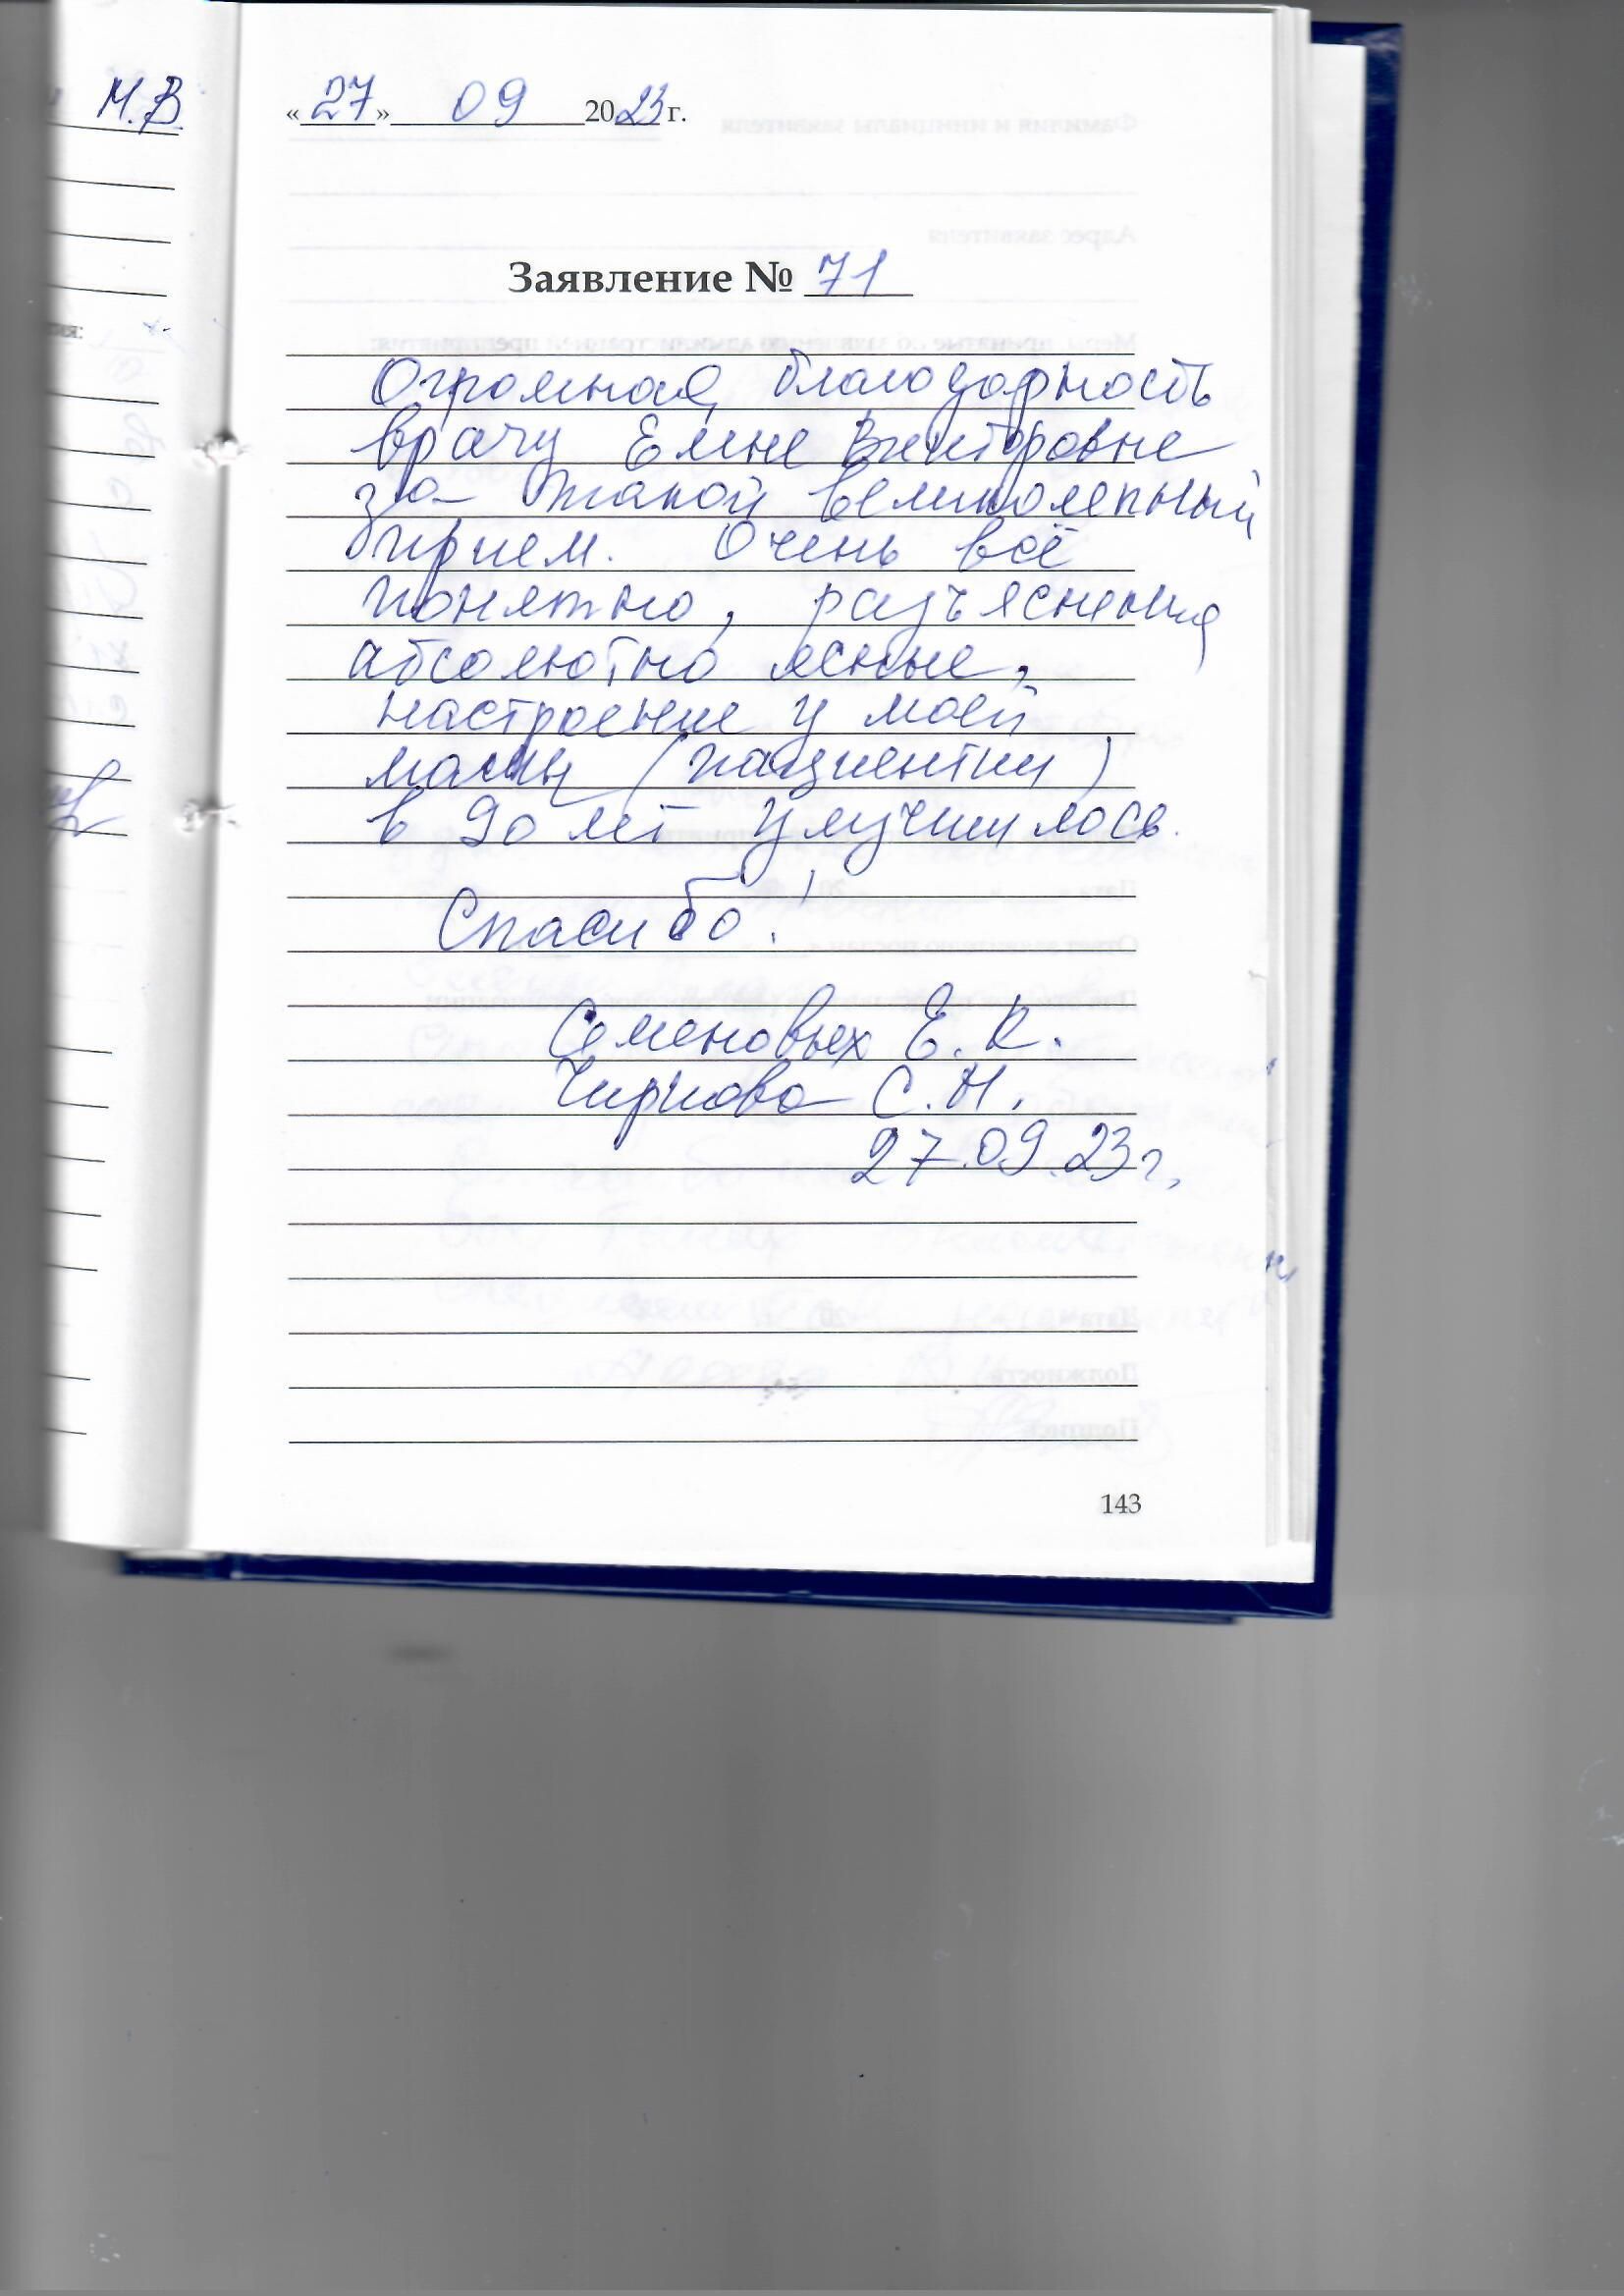 М.В.
«27» 09 2023 г.
Заявление № 71
Огромная благодарность
врачу Елене Викторовне
за такой великолепный
прием. Очень всё
понятно, разъяснения
абсолютно ясные,
настроение у моей
мамы (пациентки)
в 90 лет улучшилось.
Спасибо!
Семеновых Е. К.
Чиркова С.Н.
27.09.23 г.
143